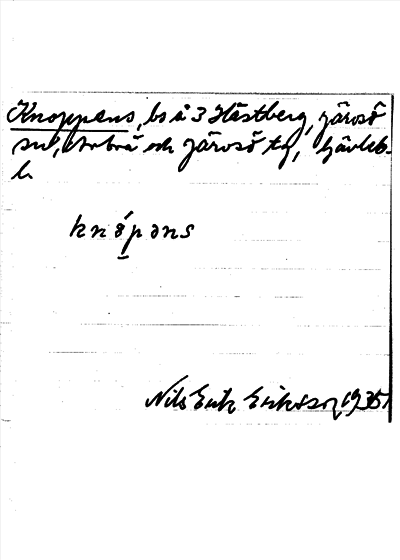 Knoppens, bs å 3 Hästberg, Järvsö
sn, Arbrå och Järvsö tg, Gävleb.
l.
knɔ́pəns
Nils Erik Eriksson 1935